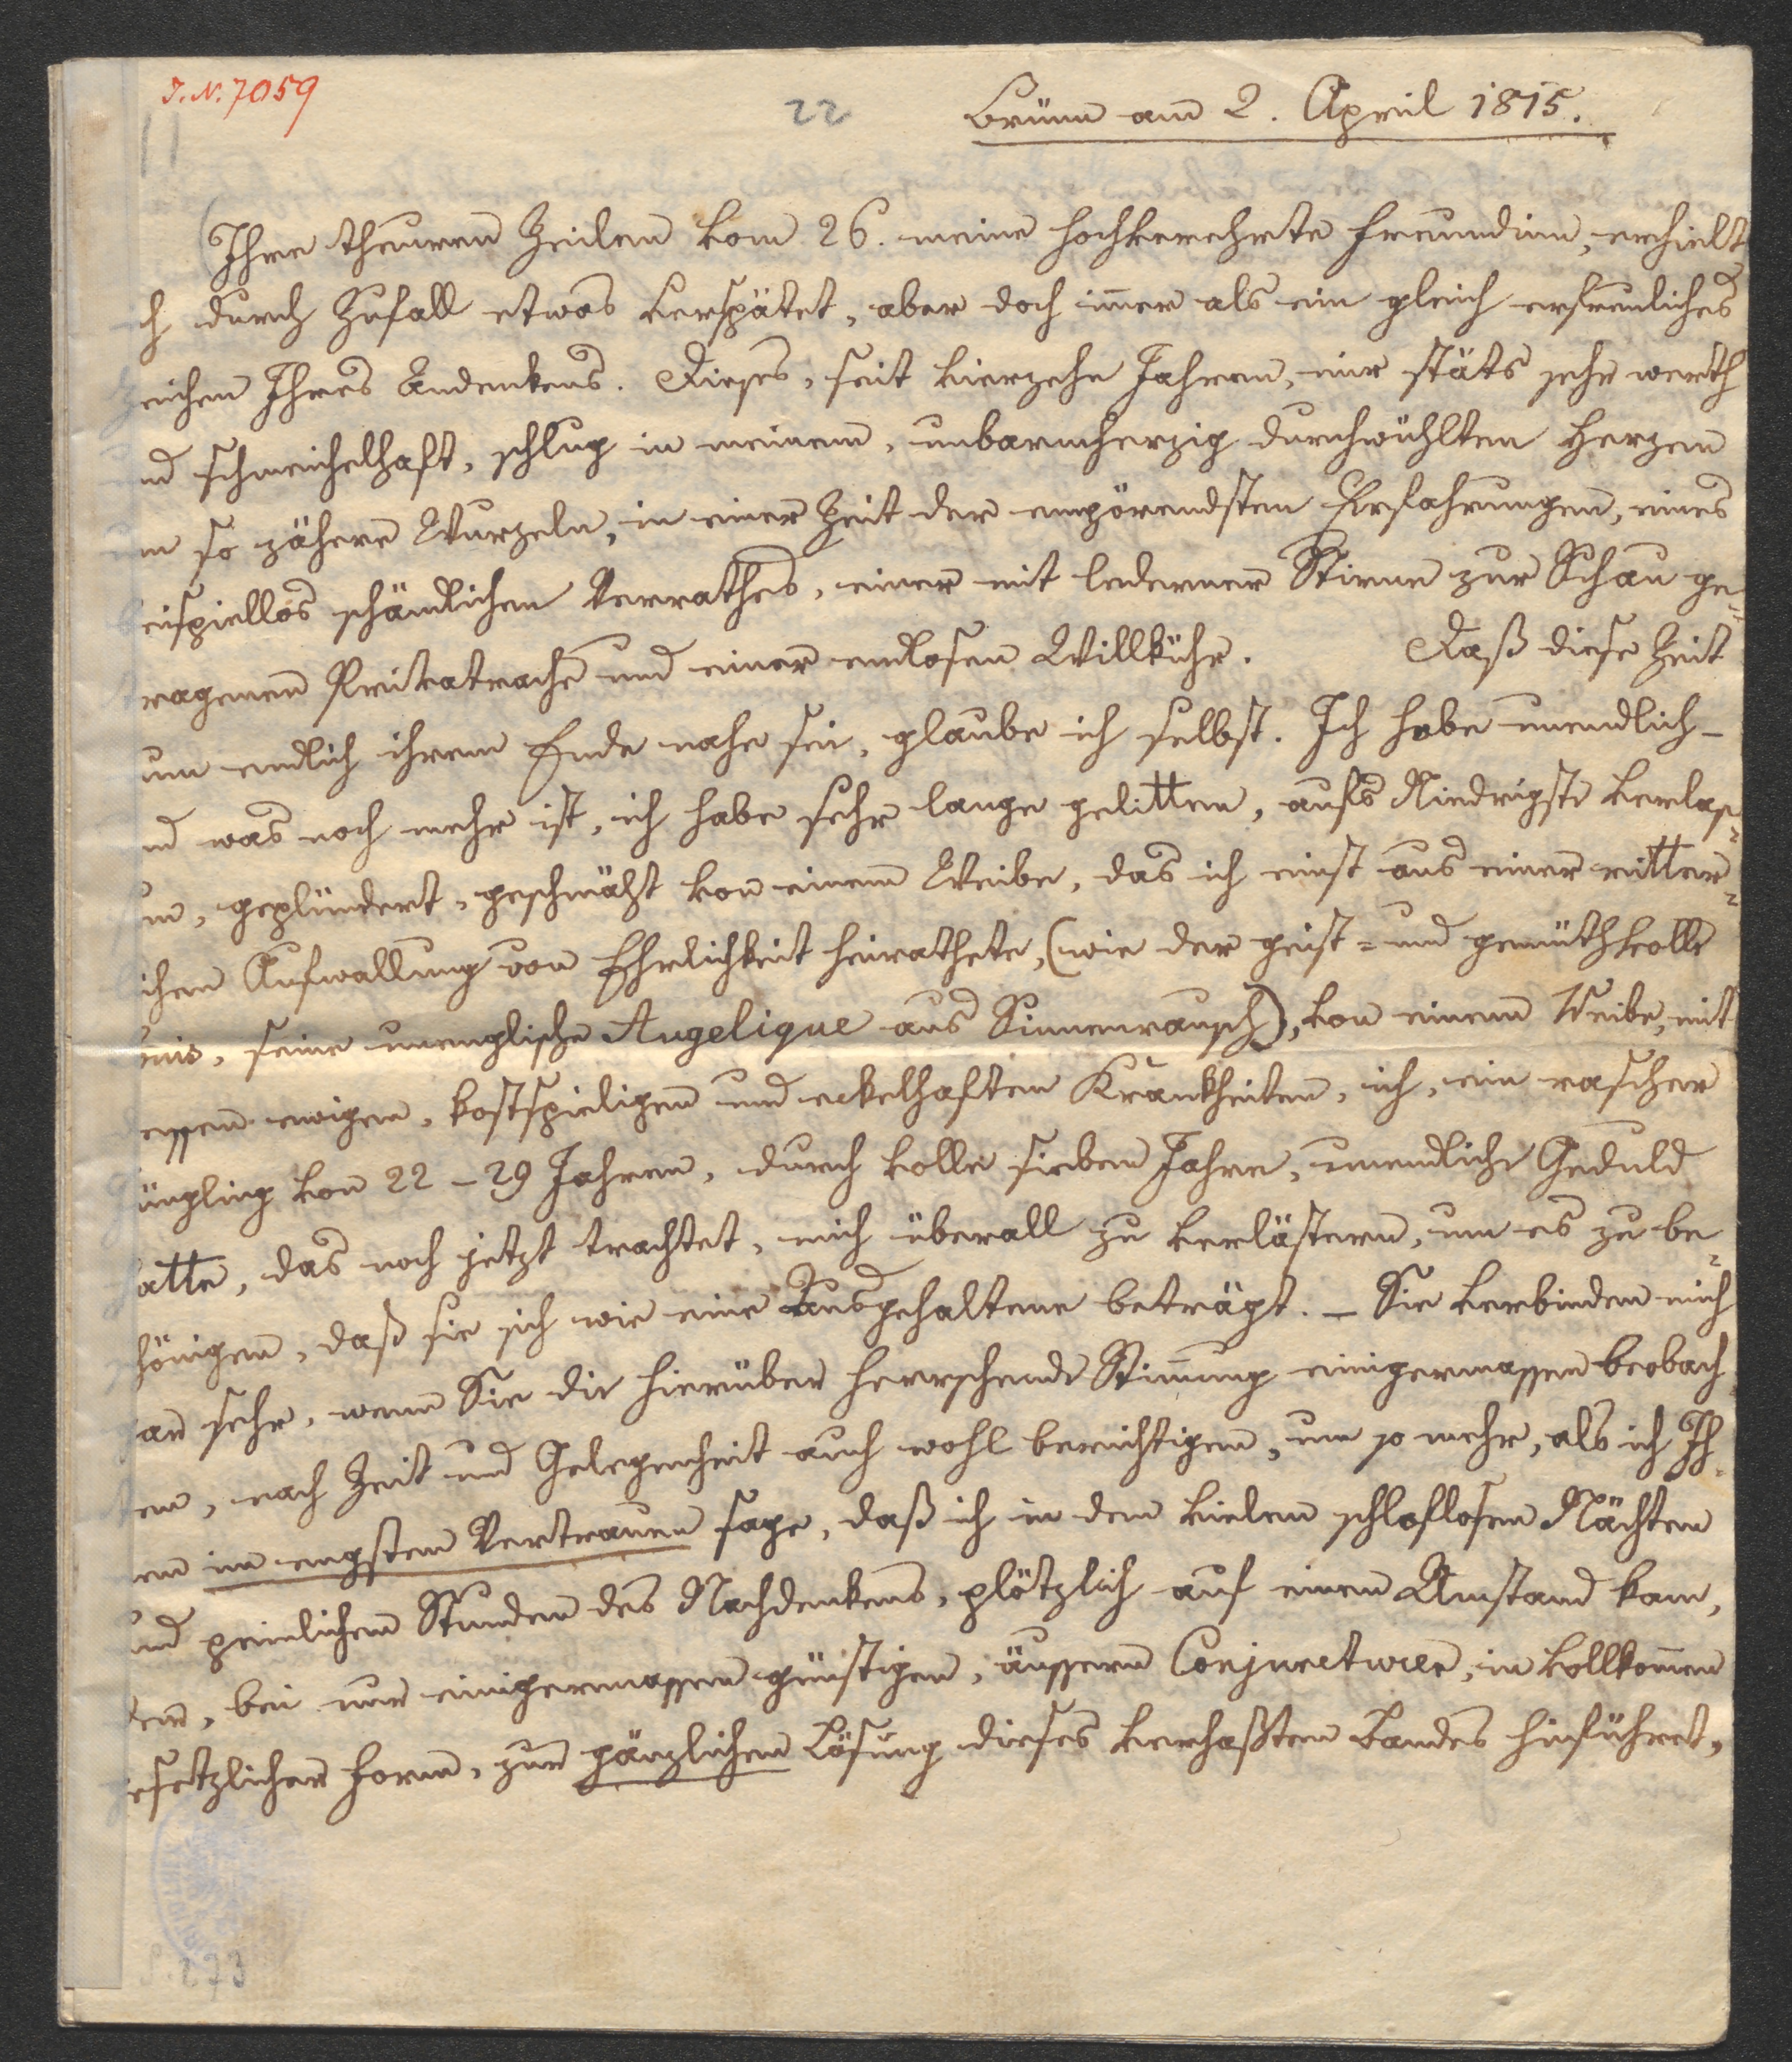 J.N. 7059
22
Brünn am 2. April 1815.
Ihre theuren Zeilen vom 26. meine hochverehrte Freundinn, erhielt
ch durch Zufall etwas verspätet, aber doch immer als ein gleich erfreuliches
eichen Ihres Andenkens. Dieses, seit vierzehn Jahren, mir stäts sehr werth
nd schmeichelhaft, schlug in meinem, unbarmherzig durchwühlten Herzen
m so zähere Wurzeln, in einer Zeit der empörendsten Erfahrungen, eines
eispiellos schändlichen Verrathes, einer mit lederner Stirne zur Schau ge-
ragenen Privatrache und einer endlosen Willkühr. Daß diese Zeit
nun endlich ihrem Ende nahe sei, glaube ich selbst. Ich habe unendlich –
nd was noch mehr ist, ich habe sehr lange gelitten, aufs Niedrigste verlas-
en, geplündert, geschmäht von einem Weibe, das ich einst aus einer ritter-
ichen Aufwallung von Ehrlichkeit heirathete, (wie der geist- und gemüthvolle
seine unenglische Angelique aus Sinnenrausch), von einem Weibe, mit
essen ewigen, kostspieligen und eckelhaften Krankheiten, ich, ein rascher
üngling von 22 – 29 Jahren, durch volle sieben Jahre, unendliche Geduld
atte, das noch jetzt trachtet, mich überall zu verlästern, um es zu be-
hönigen, daß sie sich wie eine Ausgehaltene beträgt. – Sie verbinden mich
ar sehr, wenn Sie die hierüber herrschende Stimmung einigermassen beobach
en, nach Zeit und Gelegenheit auch wohl berichtigen, um so mehr, als ich Ih-
en im engsten Vertrauen sage, daß ich in den vielen schlaflosen Nächten
nd peinlichen Stunden des Nachdenkens, plötzlich auf einen Umstand kam,
er, bei nur einigermassen günstigen, äussern Conjuncturen, in vollkommen
esetzlicher Form, zur gänzlichen Lösung dieses verhaßten Bandes hinführet,